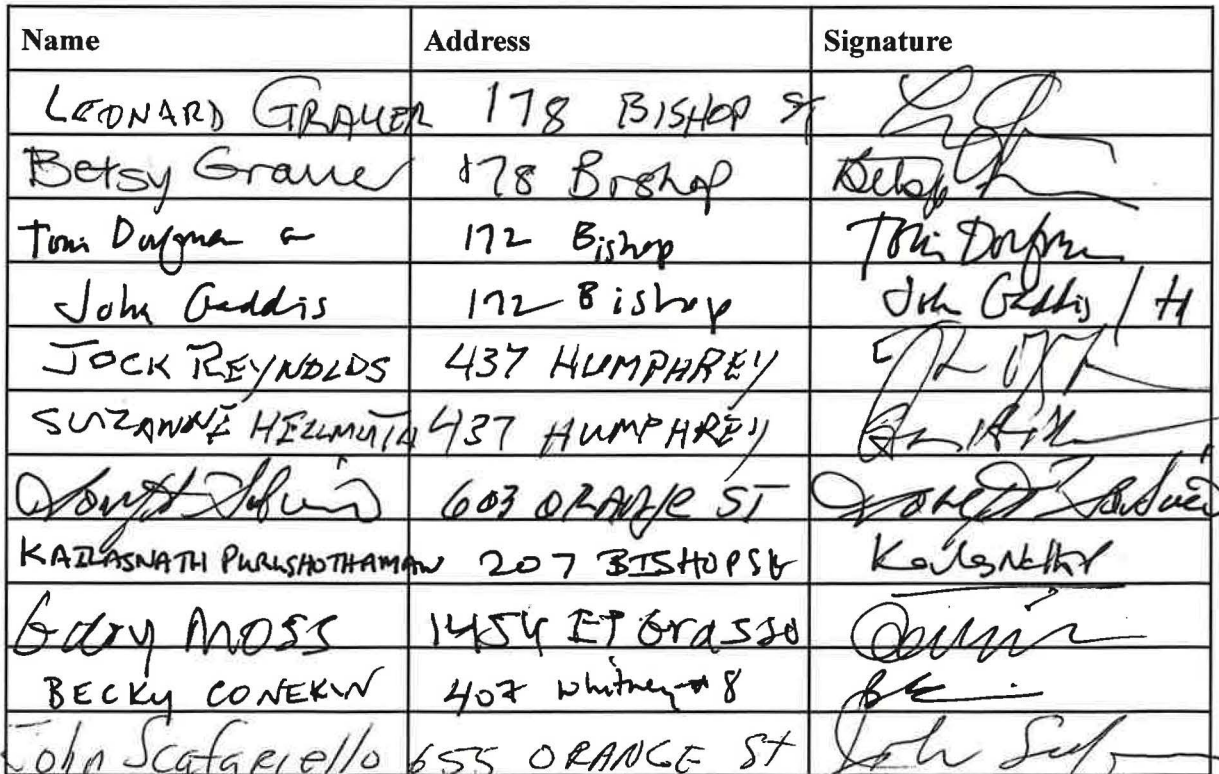 Name Address Signature
LEONARD GRAUER 178 BISHOP ST
Betsy Grauer 178 Bishop Betsy
Toni Dorfman 172 Bishop Toni Dorfman
John Gaddis 172 Bishop John Gaddis / H
JOCK REYNOLDS 437 HUMPHREY
SUZANNE HELLMUTH 437 HUMPHREY
603 ORANGE ST
KAILASNATH PURUSHOTHAMAN 207 BISHOP St Kailasnath P
Gary MOSS 1454 ET Grasso
BECKY CONEKIN 407 Whitney # 8
John Scafariello 655 ORANGE St John